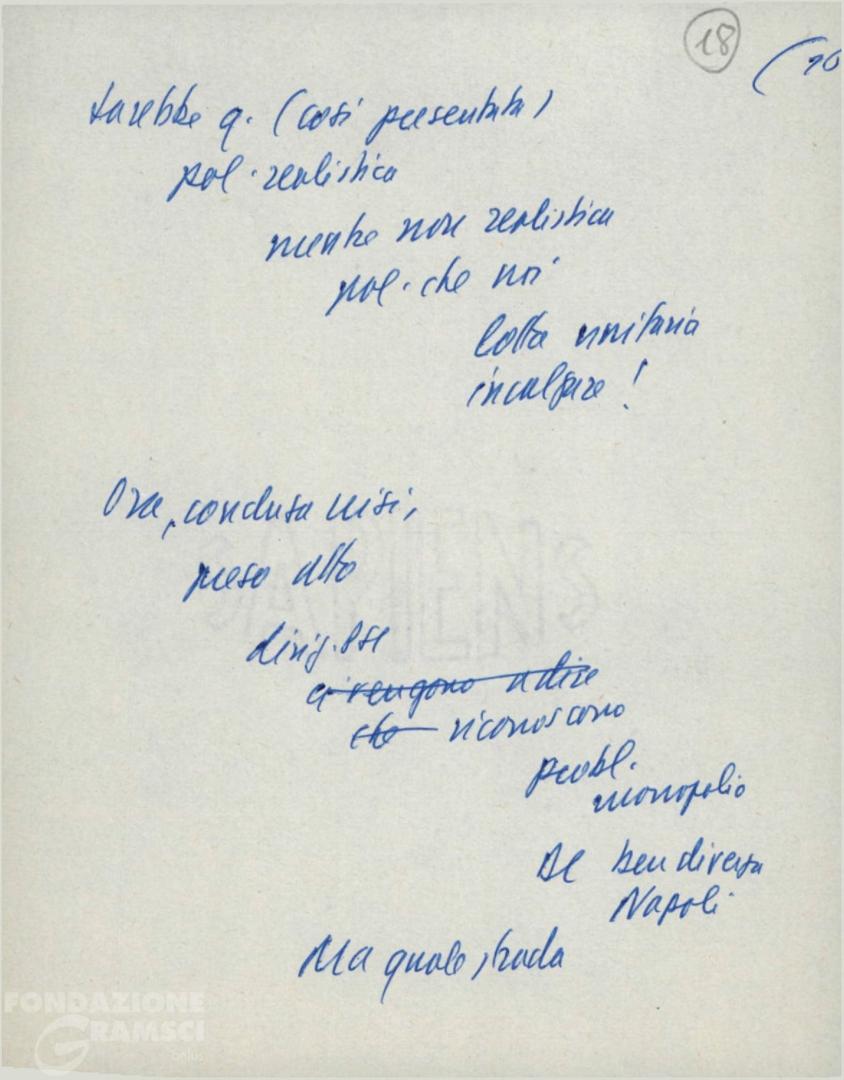 18
sarebbe q. (così presentata)
pol. realistica
mentre non realistica
pol. che noi
lotta unitaria
inculcare!
Ora, conclusa crisi,
preso atto
dirig. PSI
ci vengono a dire
che riconoscono
probl.
monopolio
ben diversa
Napoli
Ma quale strada
SAPIENS
FONDAZIONE
GRAMSCI
onlus